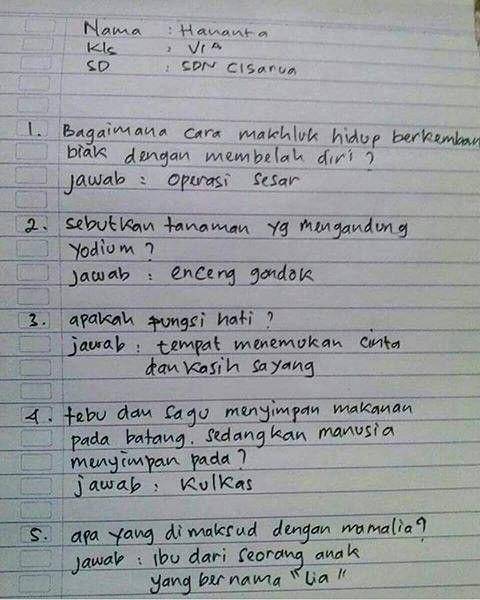 Nama : Hananta
Kls : VI A
SD : SDN Cisarua
1. Bagaimana cara makhluk hidup berkemban
biak dengan membelah diri ?
jawab : operasi sesar
2. sebutkan tanaman yg mengandung
yodium ?
jawab : enceng gondok
3. apakah fungsi hati ?
jawab : tempat menemukan cinta
dan kasih sayang
4. tebu dan sagu menyimpan makanan
pada batang. sedangkan manusia
menyimpan pada ?
jawab : kulkas
5. apa yang dimaksud dengan mamalia?
jawab : ibu dari seorang anak
yang bernama "Lia"